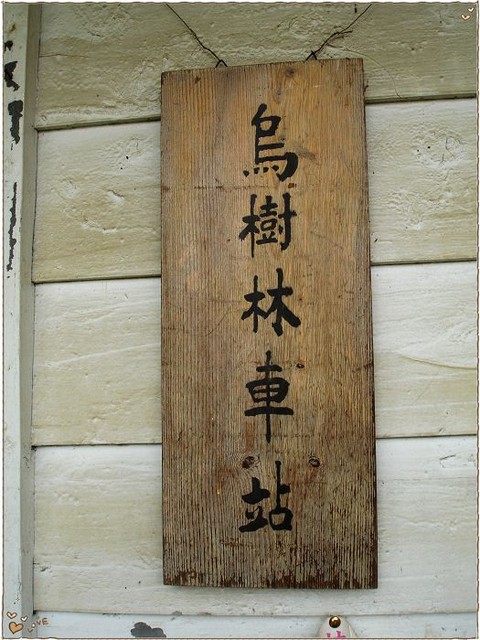 烏樹林車站
LOVE